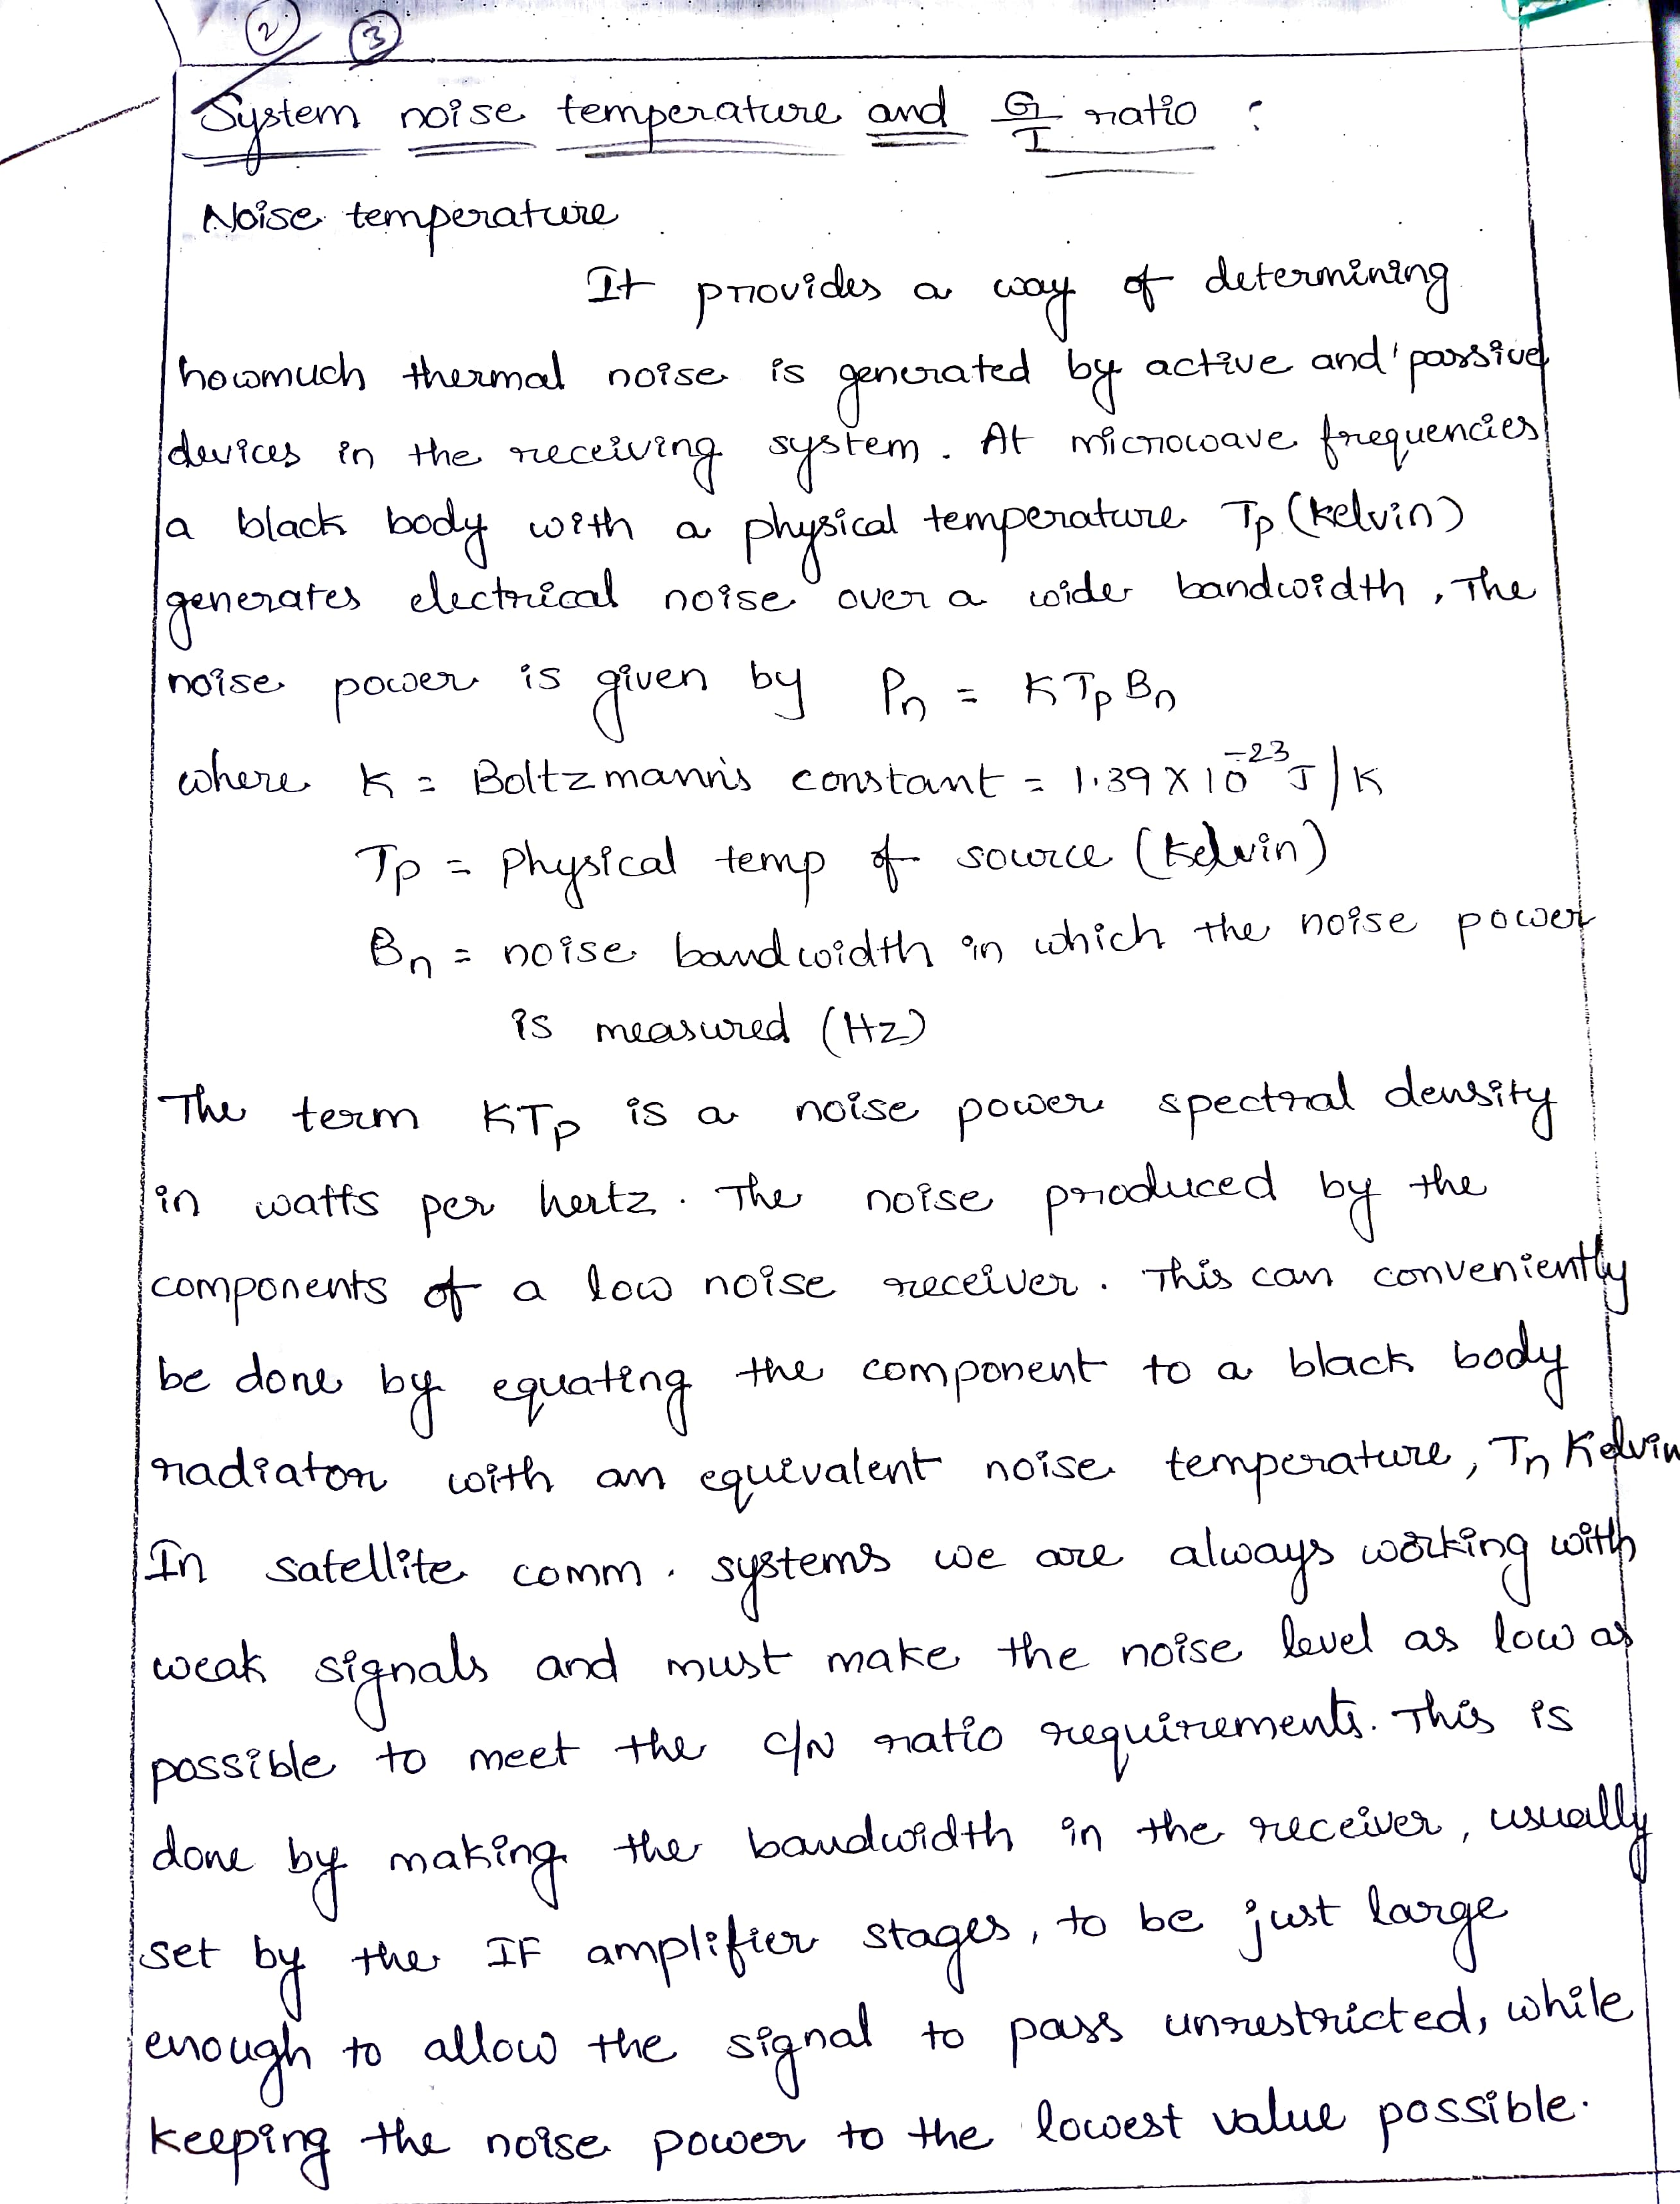 2 3
System noise temperature and G/T ratio :
Noise temperature
It provides a way of determining
howmuch thermal noise is generated by active and passive
devices in the receiving system. At microwave frequencies
a black body with a physical temperature Tp (kelvin)
generates electrical noise over a wider bandwidth, The
noise power is given by Pn = KTpBn
where K = Boltzmann's constant = 1.39 X 10^-23 J/K
Tp = Physical temp of source (Kelvin)
Bn = noise bandwidth in which the noise power
is measured (Hz)
The term KTp is a noise power spectral density
in watts per hertz. The noise produced by the
components of a low noise receiver. This can conveniently
be done by equating the component to a black body
radiator with an equivalent noise temperature, Tn Kelvin
In satellite comm. systems we are always working with
weak signals and must make the noise level as low as
possible to meet the C/N ratio requirements. This is
done by making the bandwidth in the receiver, usually
set by the IF amplifier stages, to be just large
enough to allow the signal to pass unrestricted, while
keeping the noise power to the lowest value possible.